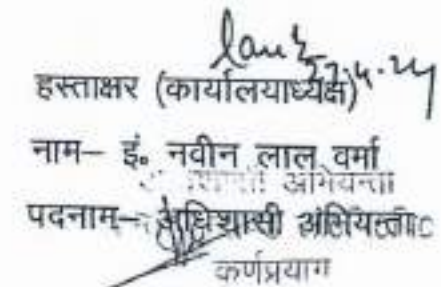 27.4.24
हस्ताक्षर (कार्यालयाध्यक्ष)
नाम– इं. नवीन लाल वर्मा
अभियन्ता
पदनाम– अधिशासी अभियन्ता
कर्णप्रयाग